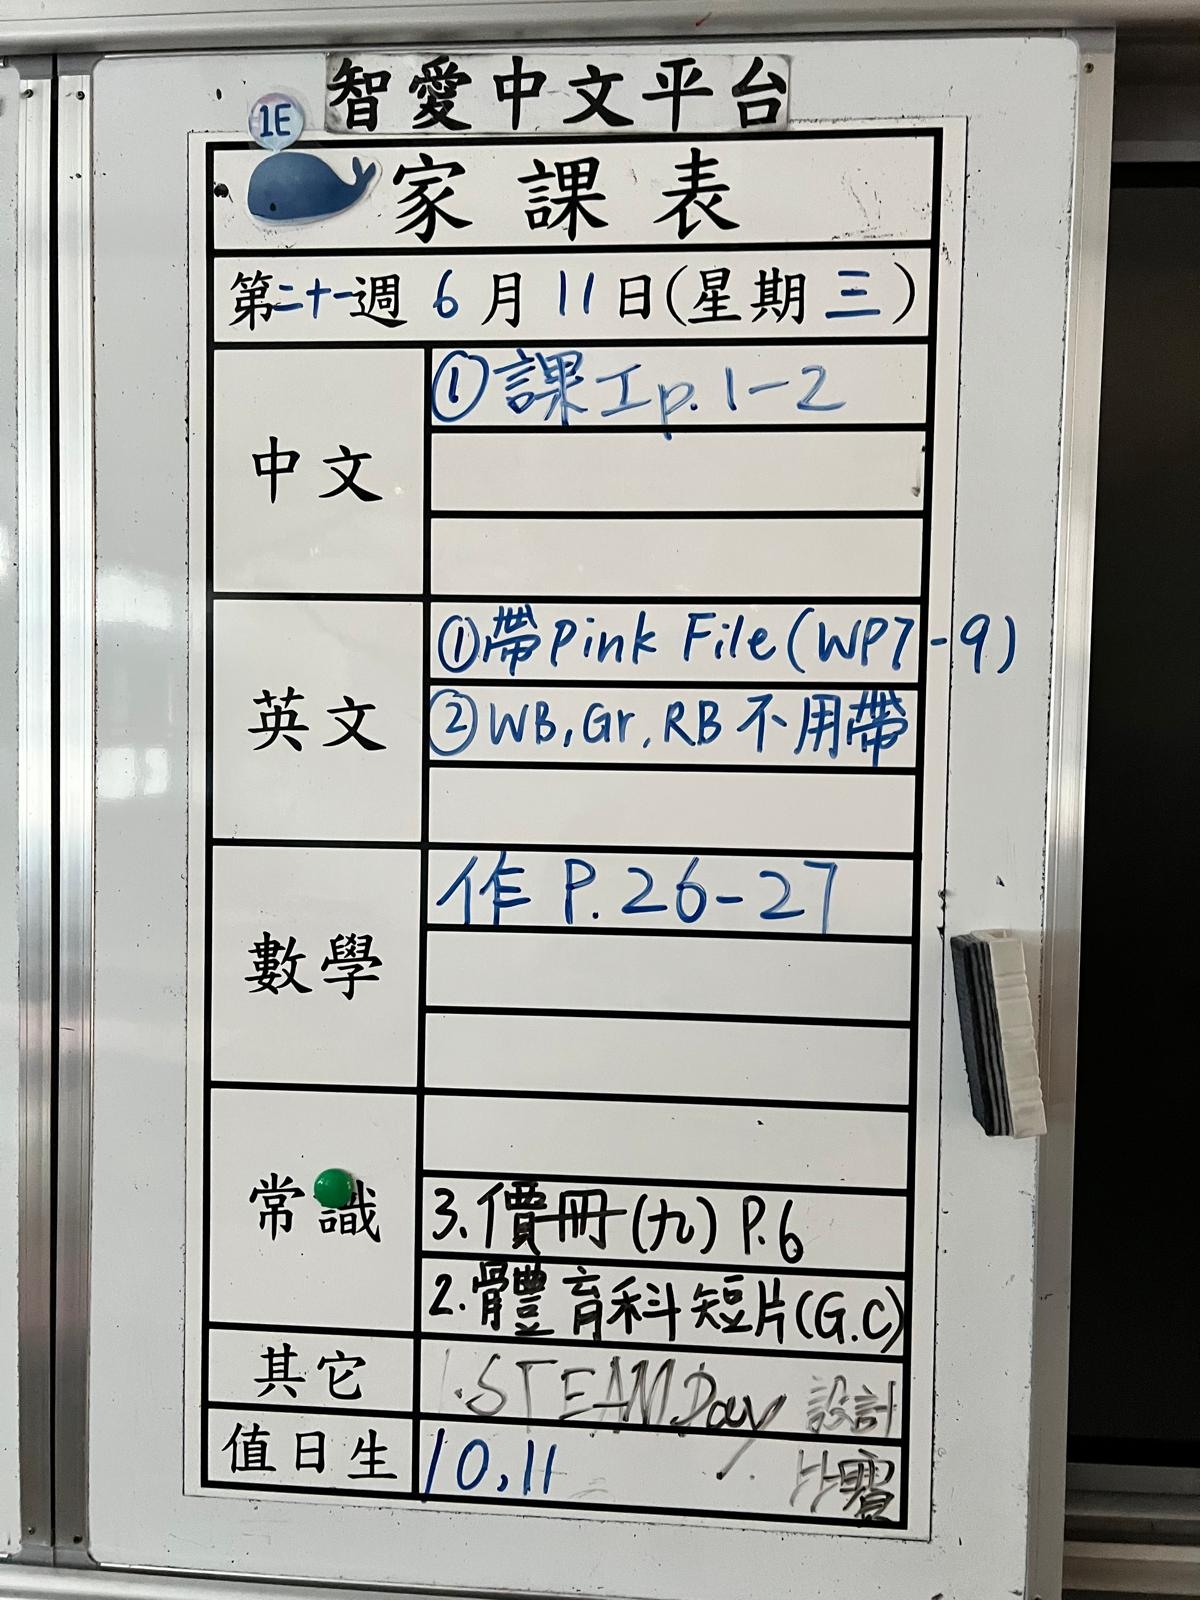 智愛中文平台
1E
家課表
第二十一週 6月11日(星期三)
中文
①課工p.1-2
英文
①帶Pink File(WP7-9)
②WB,Gr,RB不用帶
數學
作 P.26-27
常識
3.價冊(九) P.6
2.體育科短片(G.C)
其它
1.STEAM Day 設計
比賽
值日生
10,11